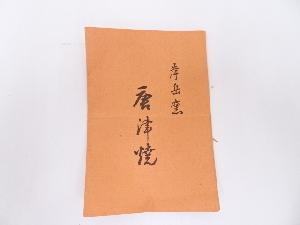 岳窯
唐津焼